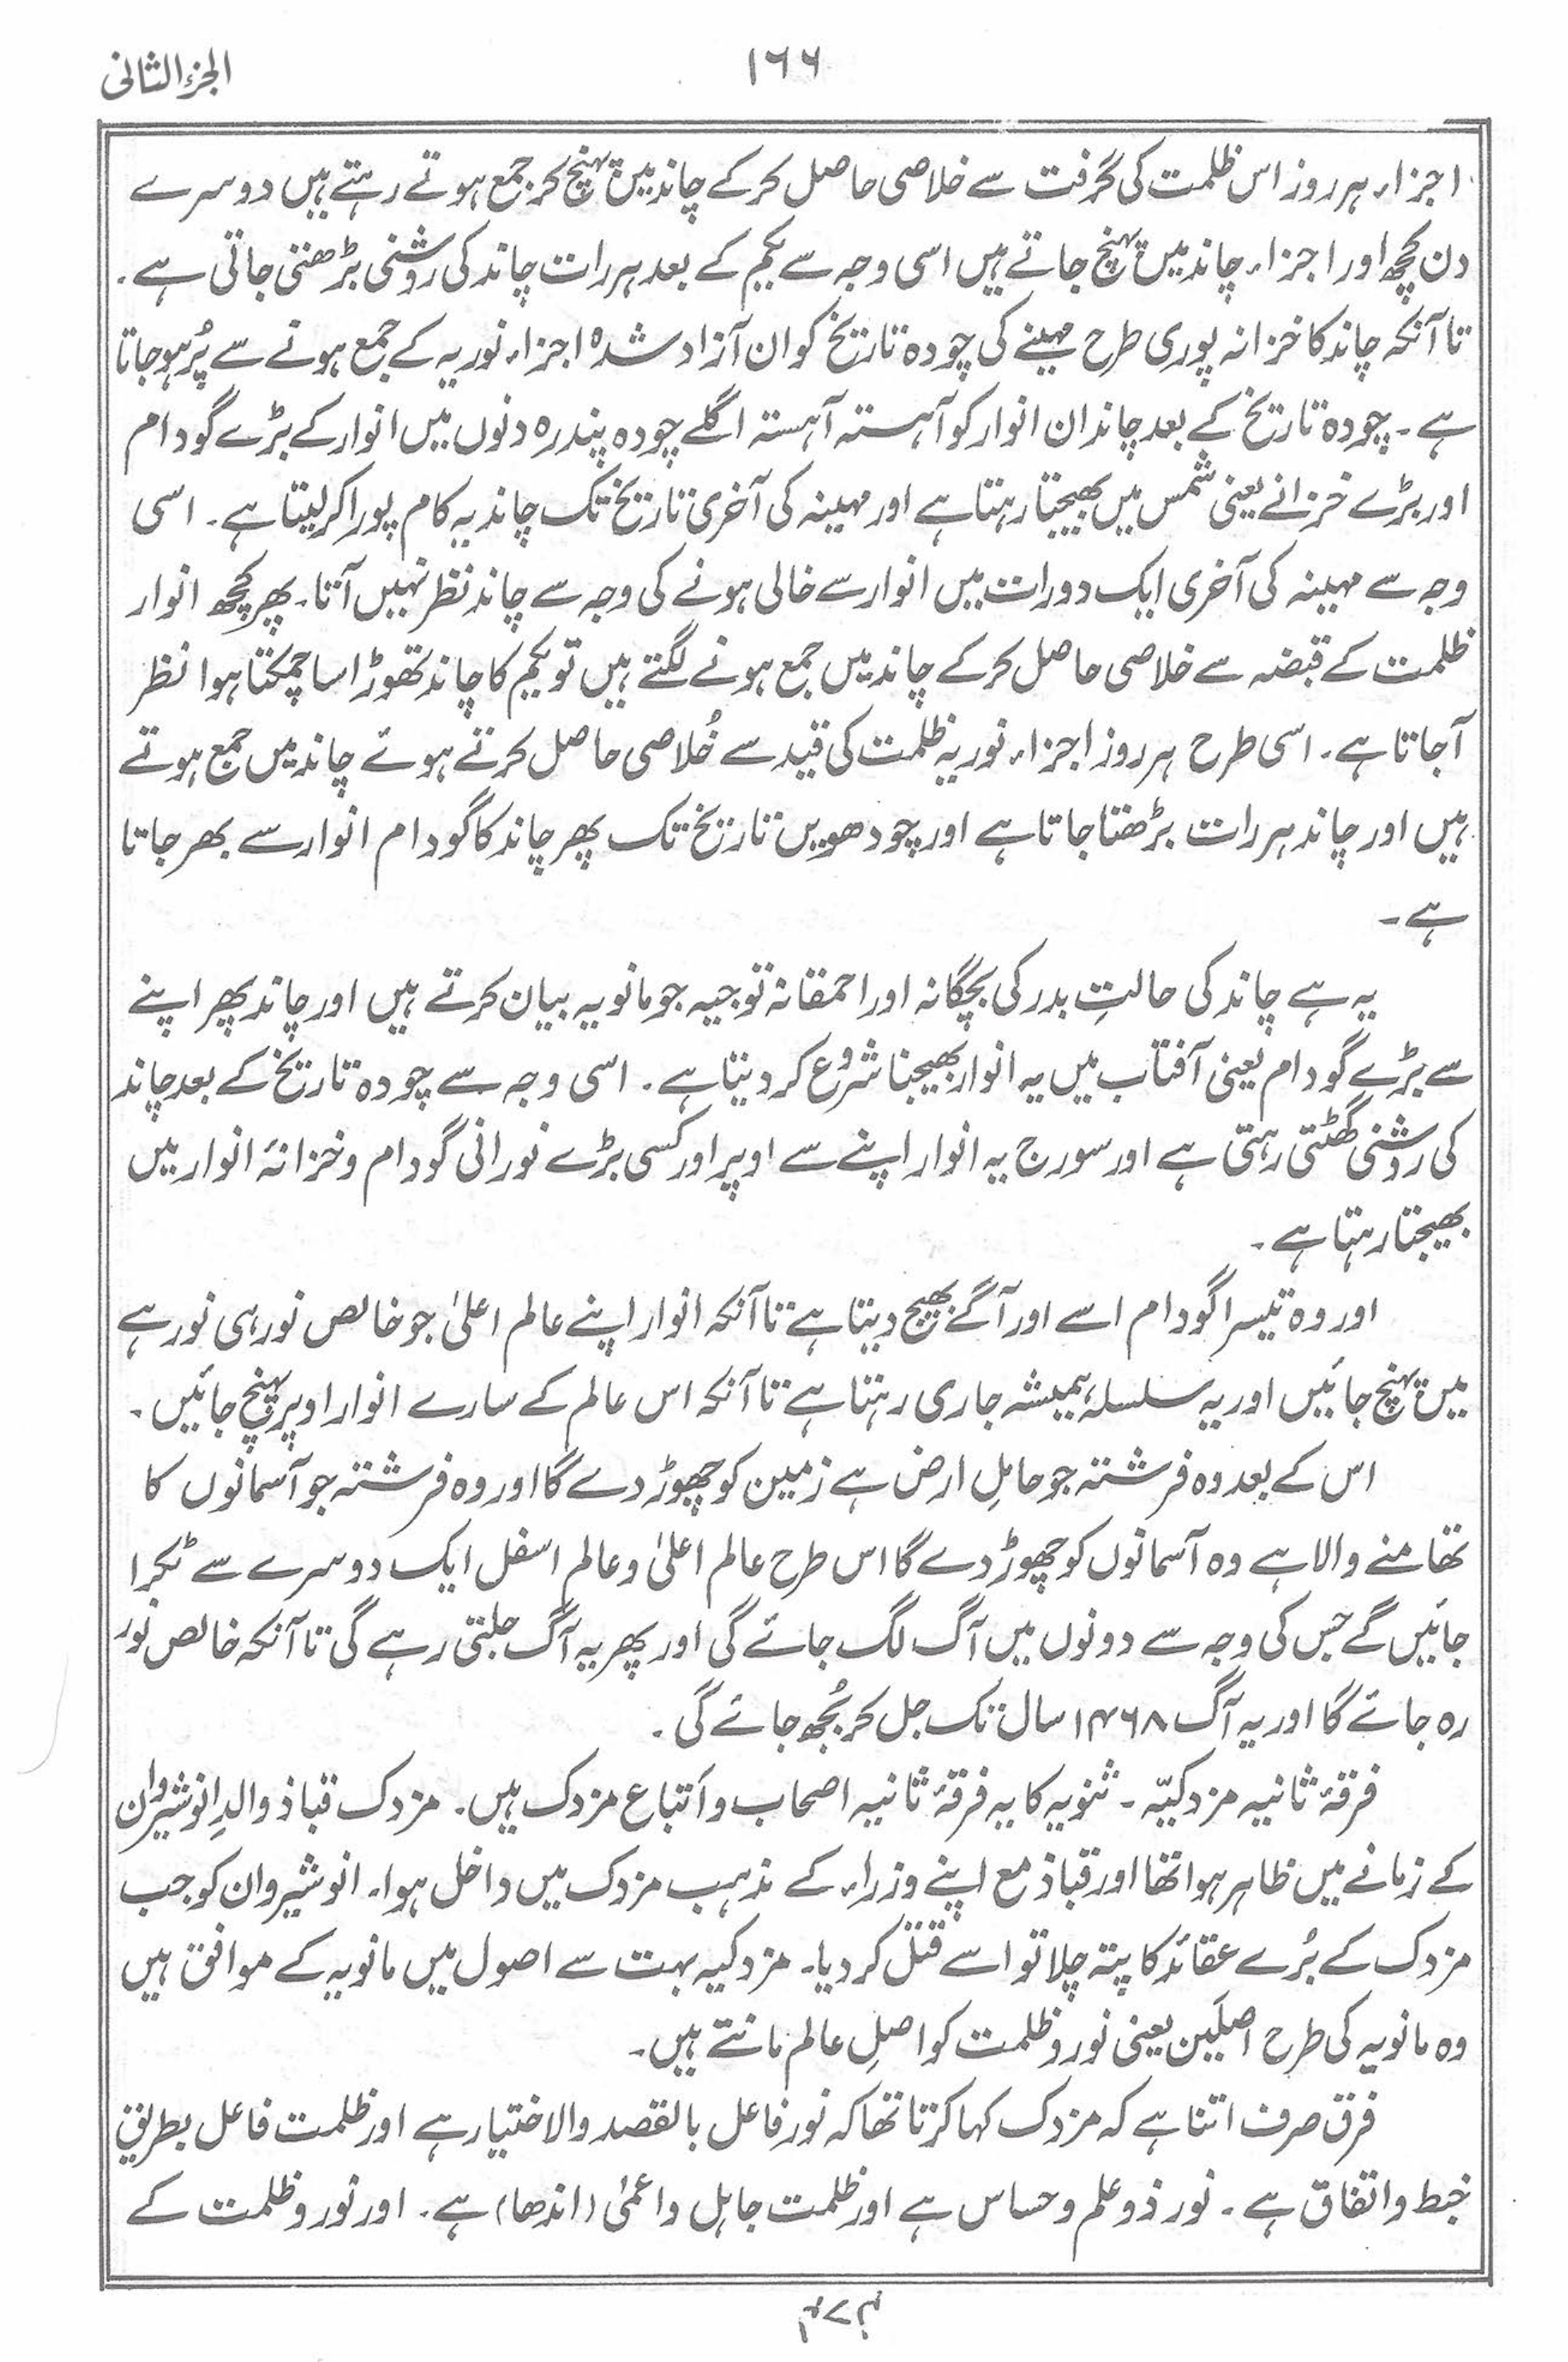 الجزء الثانی
۱۶۶
اجزاء ہر روز اس ظلمت کی گرفت سے خلاصی حاصل کرکے چاند میں پہنچ کر جمع ہوتے رہتے ہیں دوسرے
دن کچھ اور اجزاء چاند میں پہنچ جاتے ہیں اسی وجہ سے یکم کے بعد ہر رات چاند کی روشنی بڑھتی جاتی ہے۔
تا آنکہ چاند کا خزانہ پوری طرح مہینے کی چودہ تاریخ کو ان آزاد شدہ اجزاء نوریہ کے جمع ہونے سے پُر ہو جاتا
ہے۔ چودہ تاریخ کے بعد چاند ان انوار کو آہستہ آہستہ اگلے چودہ پندرہ دنوں میں انوار کے بڑے گودام
اور بڑے خزانے یعنی شمس میں بھیجتا رہتا ہے اور مہینہ کی آخری تاریخ تک چاند یہ کام پورا کر لیتا ہے۔ اسی
وجہ سے مہینہ کی آخری ایک دو رات میں انوار سے خالی ہونے کی وجہ سے چاند نظر نہیں آتا۔ پھر کچھ انوار
ظلمت کے قبضہ سے خلاصی حاصل کرکے چاند میں جمع ہونے لگتے ہیں تو یکم کا چاند تھوڑا سا چمکتا ہوا نظر
آجاتا ہے۔ اسی طرح ہر روز اجزاء نوریہ ظلمت کی قید سے خُلاصی حاصل کرتے ہوئے چاند میں جمع ہوتے
ہیں اور چاند ہر رات بڑھتا جاتا ہے اور چودھویں تاریخ تک پھر چاند کا گودام انوار سے بھر جاتا
ہے۔
یہ ہے چاند کی حالتِ بدر کی بچگانہ اور احمقانہ توجیہ جو مانویہ بیان کرتے ہیں اور چاند پھر اپنے
سے بڑے گودام یعنی آفتاب میں یہ انوار بھیجنا شروع کر دیتا ہے۔ اسی وجہ سے چودہ تاریخ کے بعد چاند
کی روشنی گھٹتی رہتی ہے اور سورج یہ انوار اپنے سے اوپر اور کسی بڑے نورانی گودام و خزانۂ انوار میں
بھیجتا رہتا ہے۔
اور وہ تیسرا گودام اسے اور آگے بھیج دیتا ہے تا آنکہ انوار اپنے عالم اعلیٰ جو خالص نور ہی نور ہے
میں پہنچ جائیں اور یہ سلسلہ ہمیشہ جاری رہتا ہے تا آنکہ اس عالم کے سارے انوار اوپر پہنچ جائیں۔
اس کے بعد وہ فرشتہ جو حاملِ ارض ہے زمین کو چھوڑ دے گا اور وہ فرشتہ جو آسمانوں کا
تھامنے والا ہے وہ آسمانوں کو چھوڑ دے گا اس طرح عالم اعلیٰ و عالم اسفل ایک دوسرے سے ٹکرا
جائیں گے جس کی وجہ سے دونوں میں آگ لگ جائے گی اور پھر یہ آگ جلتی رہے گی تا آنکہ خالص نور
رہ جائے گا اور یہ آگ ۱۴۶۸ سال تک جل کر بُجھ جائے گی۔
فرقۂ ثانیہ مزدکیّہ۔ ثنویہ کا یہ فرقۂ ثانیہ اصحاب و اَتباع مزدک ہیں۔ مزدک قباذ والدِ انوشیروان
کے زمانے میں ظاہر ہوا تھا اور قباذ مع اپنے وزراء کے مذہب مزدک میں داخل ہوا۔ انوشیروان کو جب
مزدک کے بُرے عقائد کا پتہ چلا تو اسے قتل کر دیا۔ مزدکیہ بہت سے اصول میں مانویہ کے موافق ہیں
وہ مانویہ کی طرح اصلَین یعنی نور و ظلمت کو اصلِ عالم مانتے ہیں۔
فرق صرف اتنا ہے کہ مزدک کہا کرتا تھا کہ نور فاعل بالقصد والاختیار ہے اور ظلمت فاعل بطریقِ
خبط و اتفاق ہے۔ نور ذو علم و حساس ہے اور ظلمت جاہل و اعمیٰ (اندھا) ہے۔ اور نور و ظلمت کے